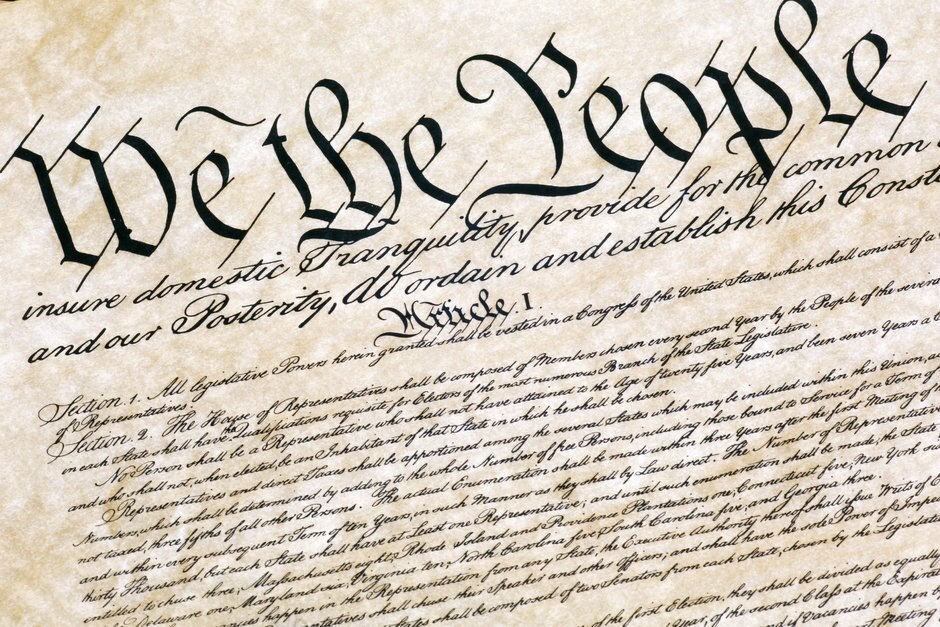 We the People
insure domestic Tranquility, provide for the common
and our Posterity, do ordain and establish this Const
Article I.
Section 1. All legislative Powers herein granted shall be vested in a Congress of the United States, which shall consist of a
of Representatives.
Section 2. The House of Representatives shall be composed of Members chosen every second Year by the People of the several
in each State shall have the Qualifications requisite for Electors of the most numerous Branch of the State Legislature.
No Person shall be a Representative who shall not have attained to the Age of twenty five Years, and been seven Years a C
and who shall not, when elected, be an Inhabitant of that State in which he shall be chosen.
Representatives and direct Taxes shall be apportioned among the several States which may be included within this Union, a
Numbers, which shall be determined by adding to the whole Number of free Persons, including those bound to Service for a Term of
not taxed, three fifths of all other Persons. The actual Enumeration shall be made within three Years after the first Meeting of
and within every subsequent Term of ten Years, in such Manner as they shall by Law direct. The Number of Representatives
thirty Thousand, but each State shall have at Least one Representative; and until such enumeration shall be made, the State
entitled to chuse three, Massachusetts eight, Rhode Island and Providence Plantations one, Connecticut five, New York six
Delaware one, Maryland six, Virginia ten, North Carolina five, South Carolina five, and Georgia three.
vacancies happen in the Representation from any State, the Executive Authority thereof shall issue Writs of
Representatives shall chuse their Speaker and other Officers; and shall have the sole Power of Impe
States shall be composed of two Senators from each State, chosen by the Legislature
of the first Election, they shall be divided as equally
Year, of the second Class at the Expirat
if Vacancies happen by
Meeting